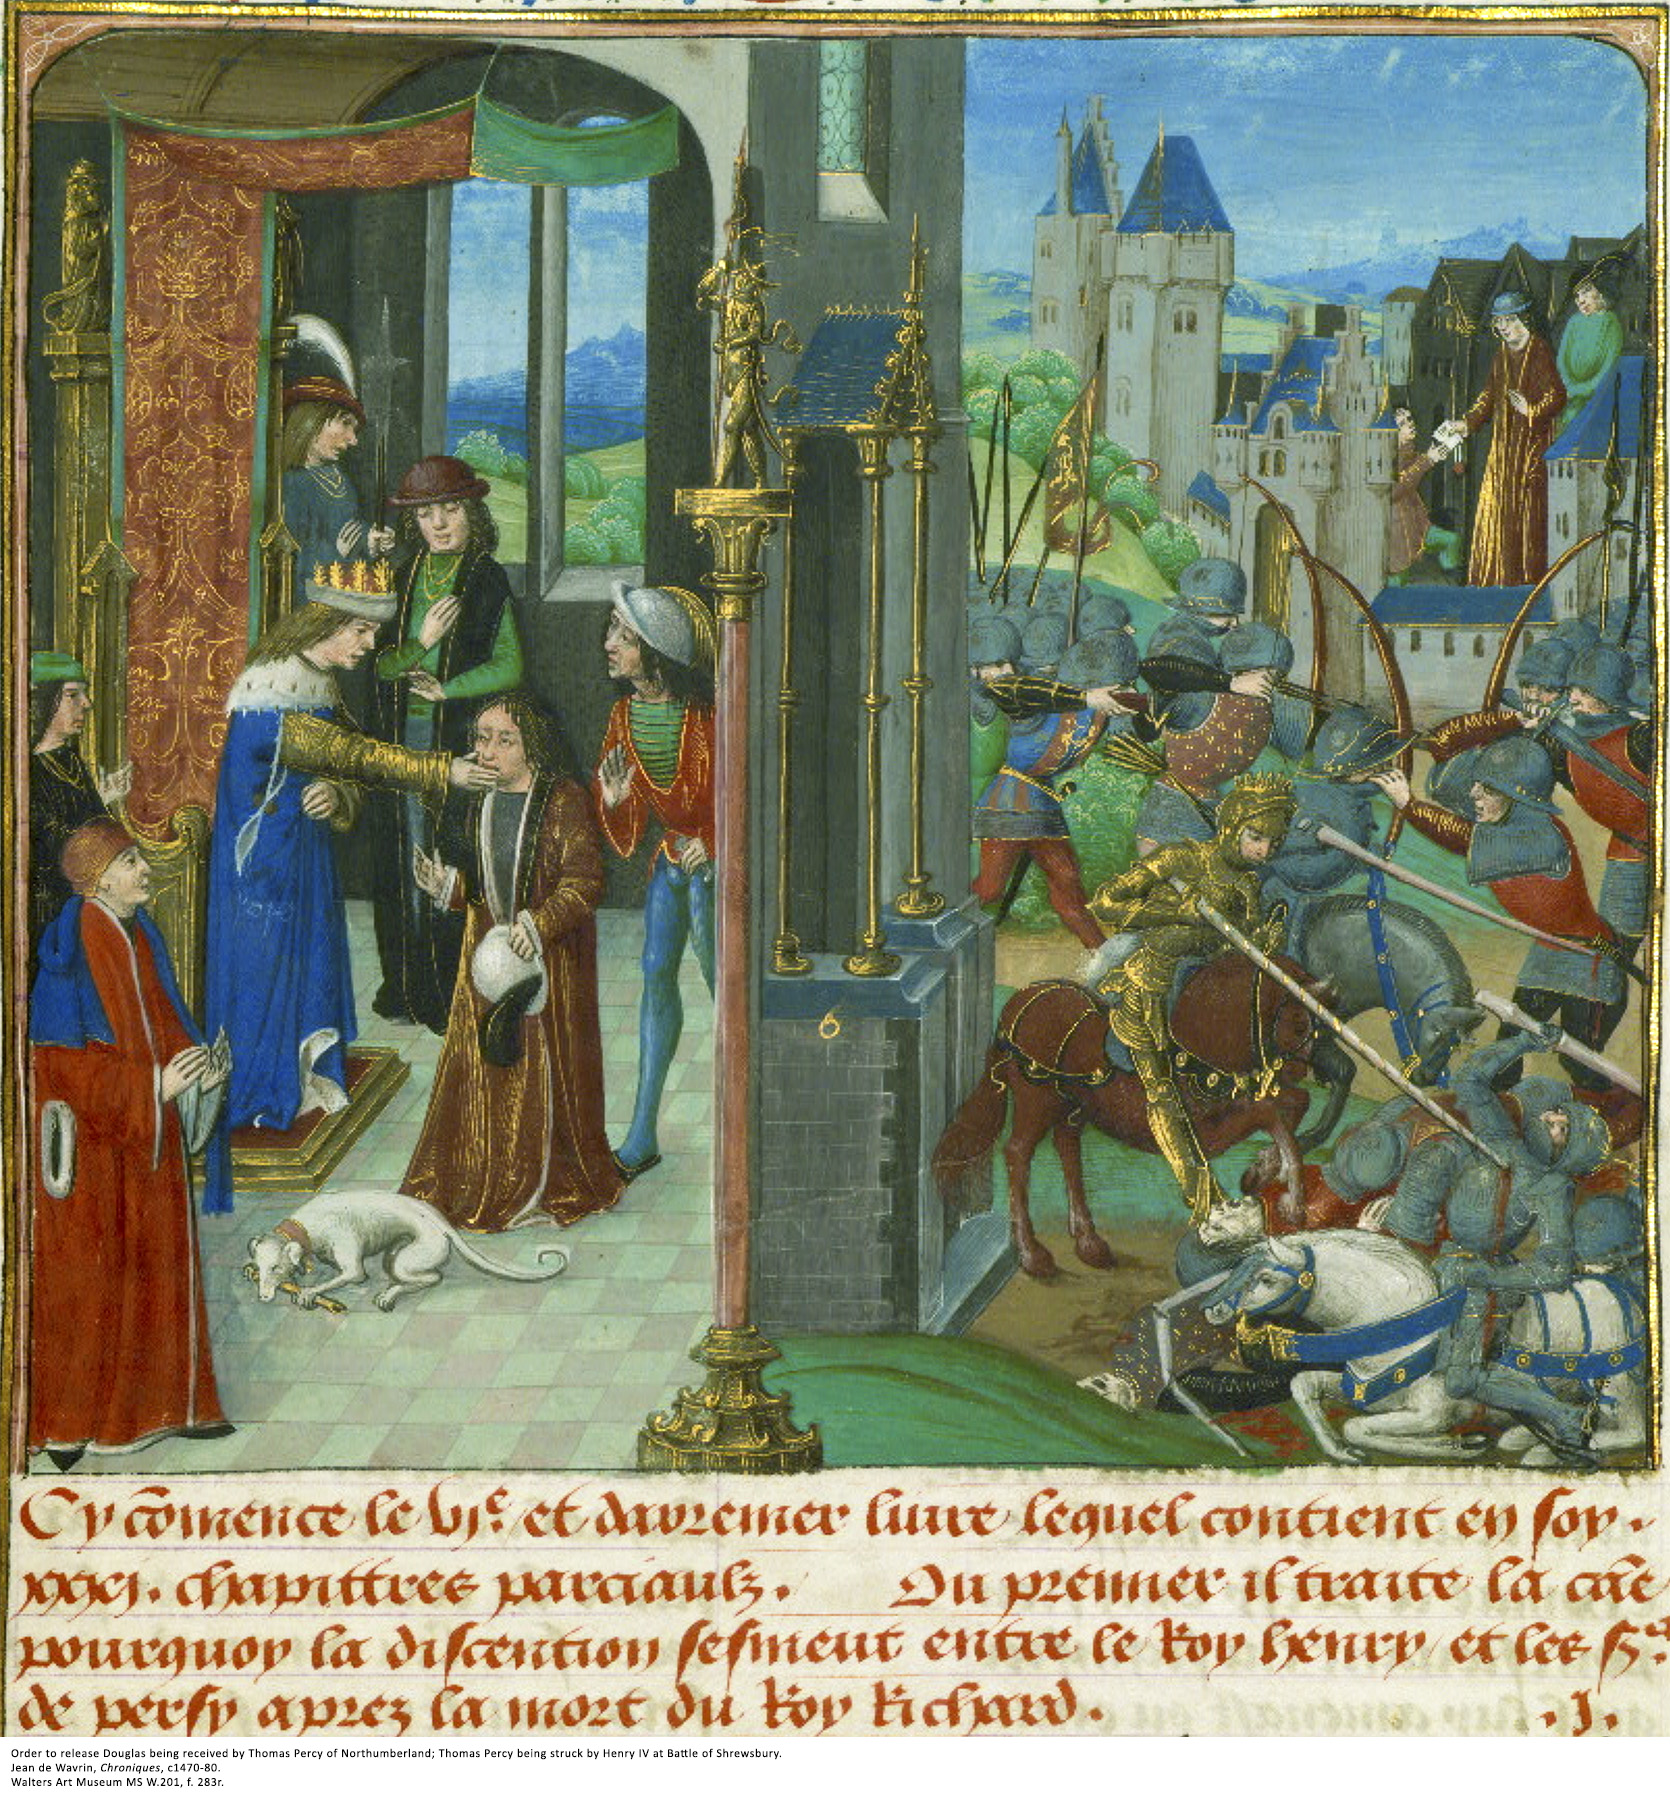 Cy cōmence le vjᵉ. et darrenier liure lequel contient en soy .
xxxj. chapittres parciaulz. Ou premier il traite la cāe
pourquoy la discention sesmeut entre le Roy henry et les sʳˢ.
de persy aprez la mort du Roy Richard. .J.
Order to release Douglas being received by Thomas Percy of Northumberland; Thomas Percy being struck by Henry IV at Battle of Shrewsbury.
Jean de Wavrin, Chroniques, c1470-80.
Walters Art Museum MS W.201, f. 283r.